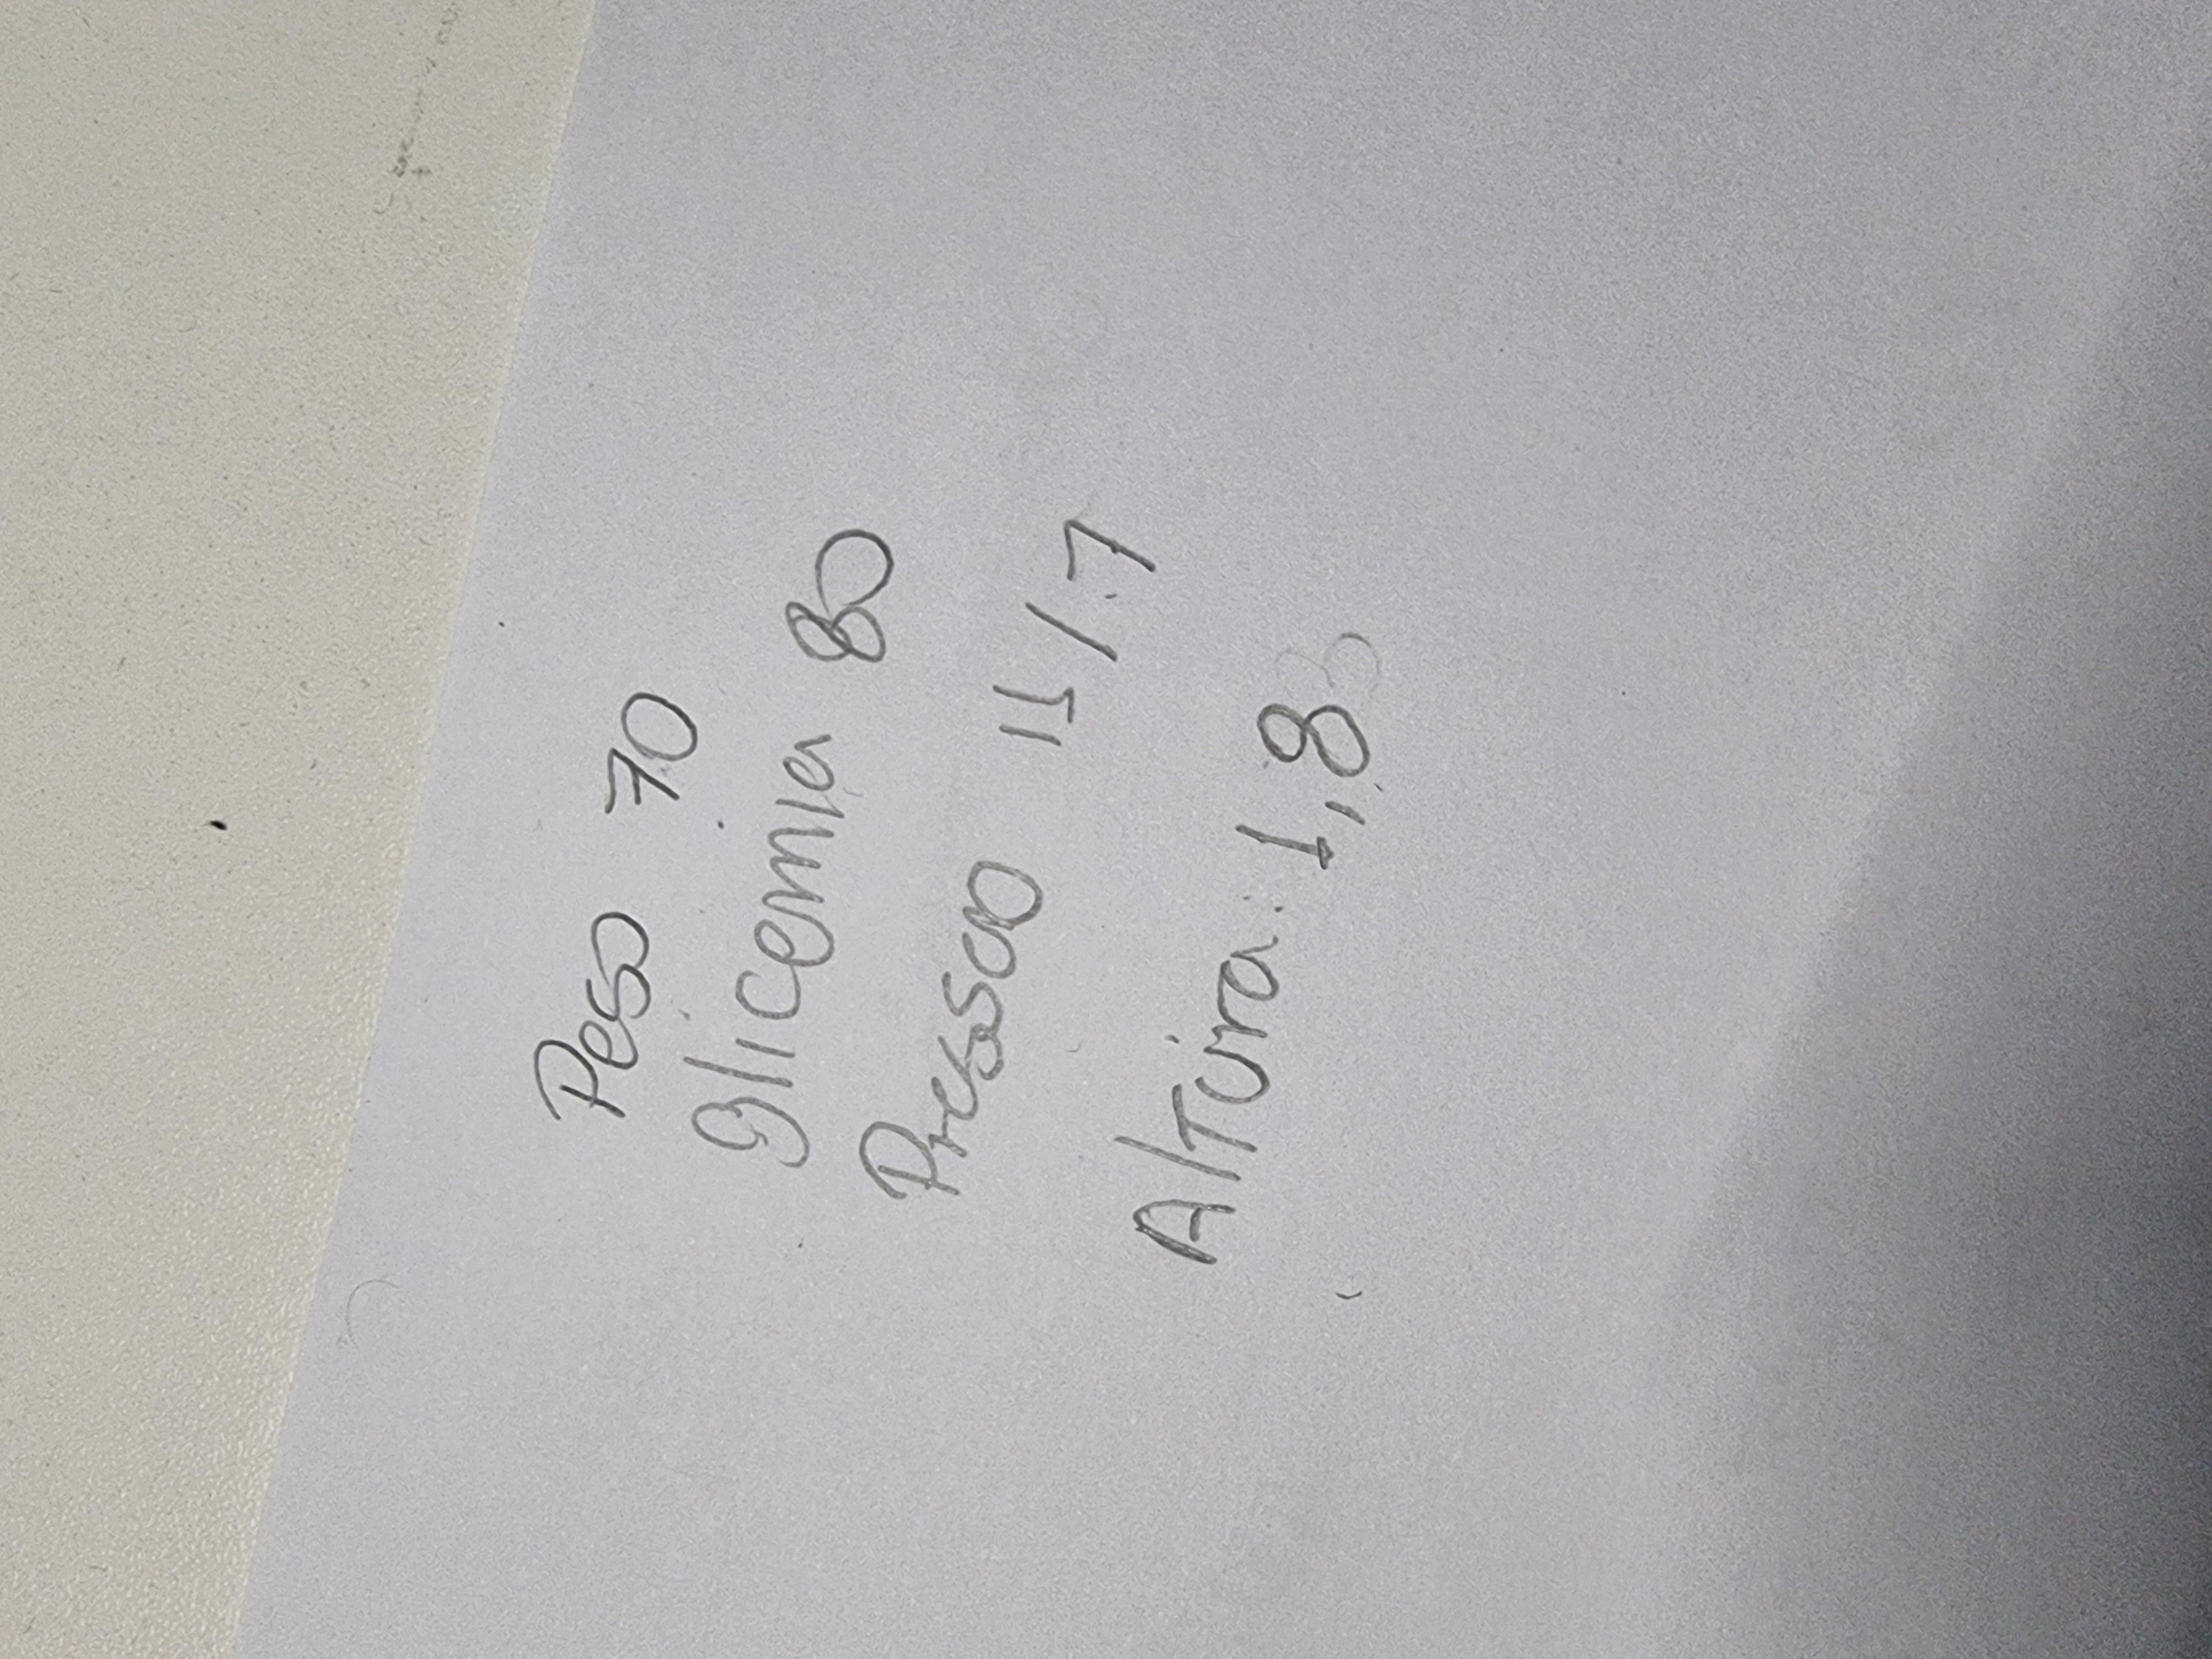 Peso 70
glicemia 80
Pressao 11/7
Altura: 1,8